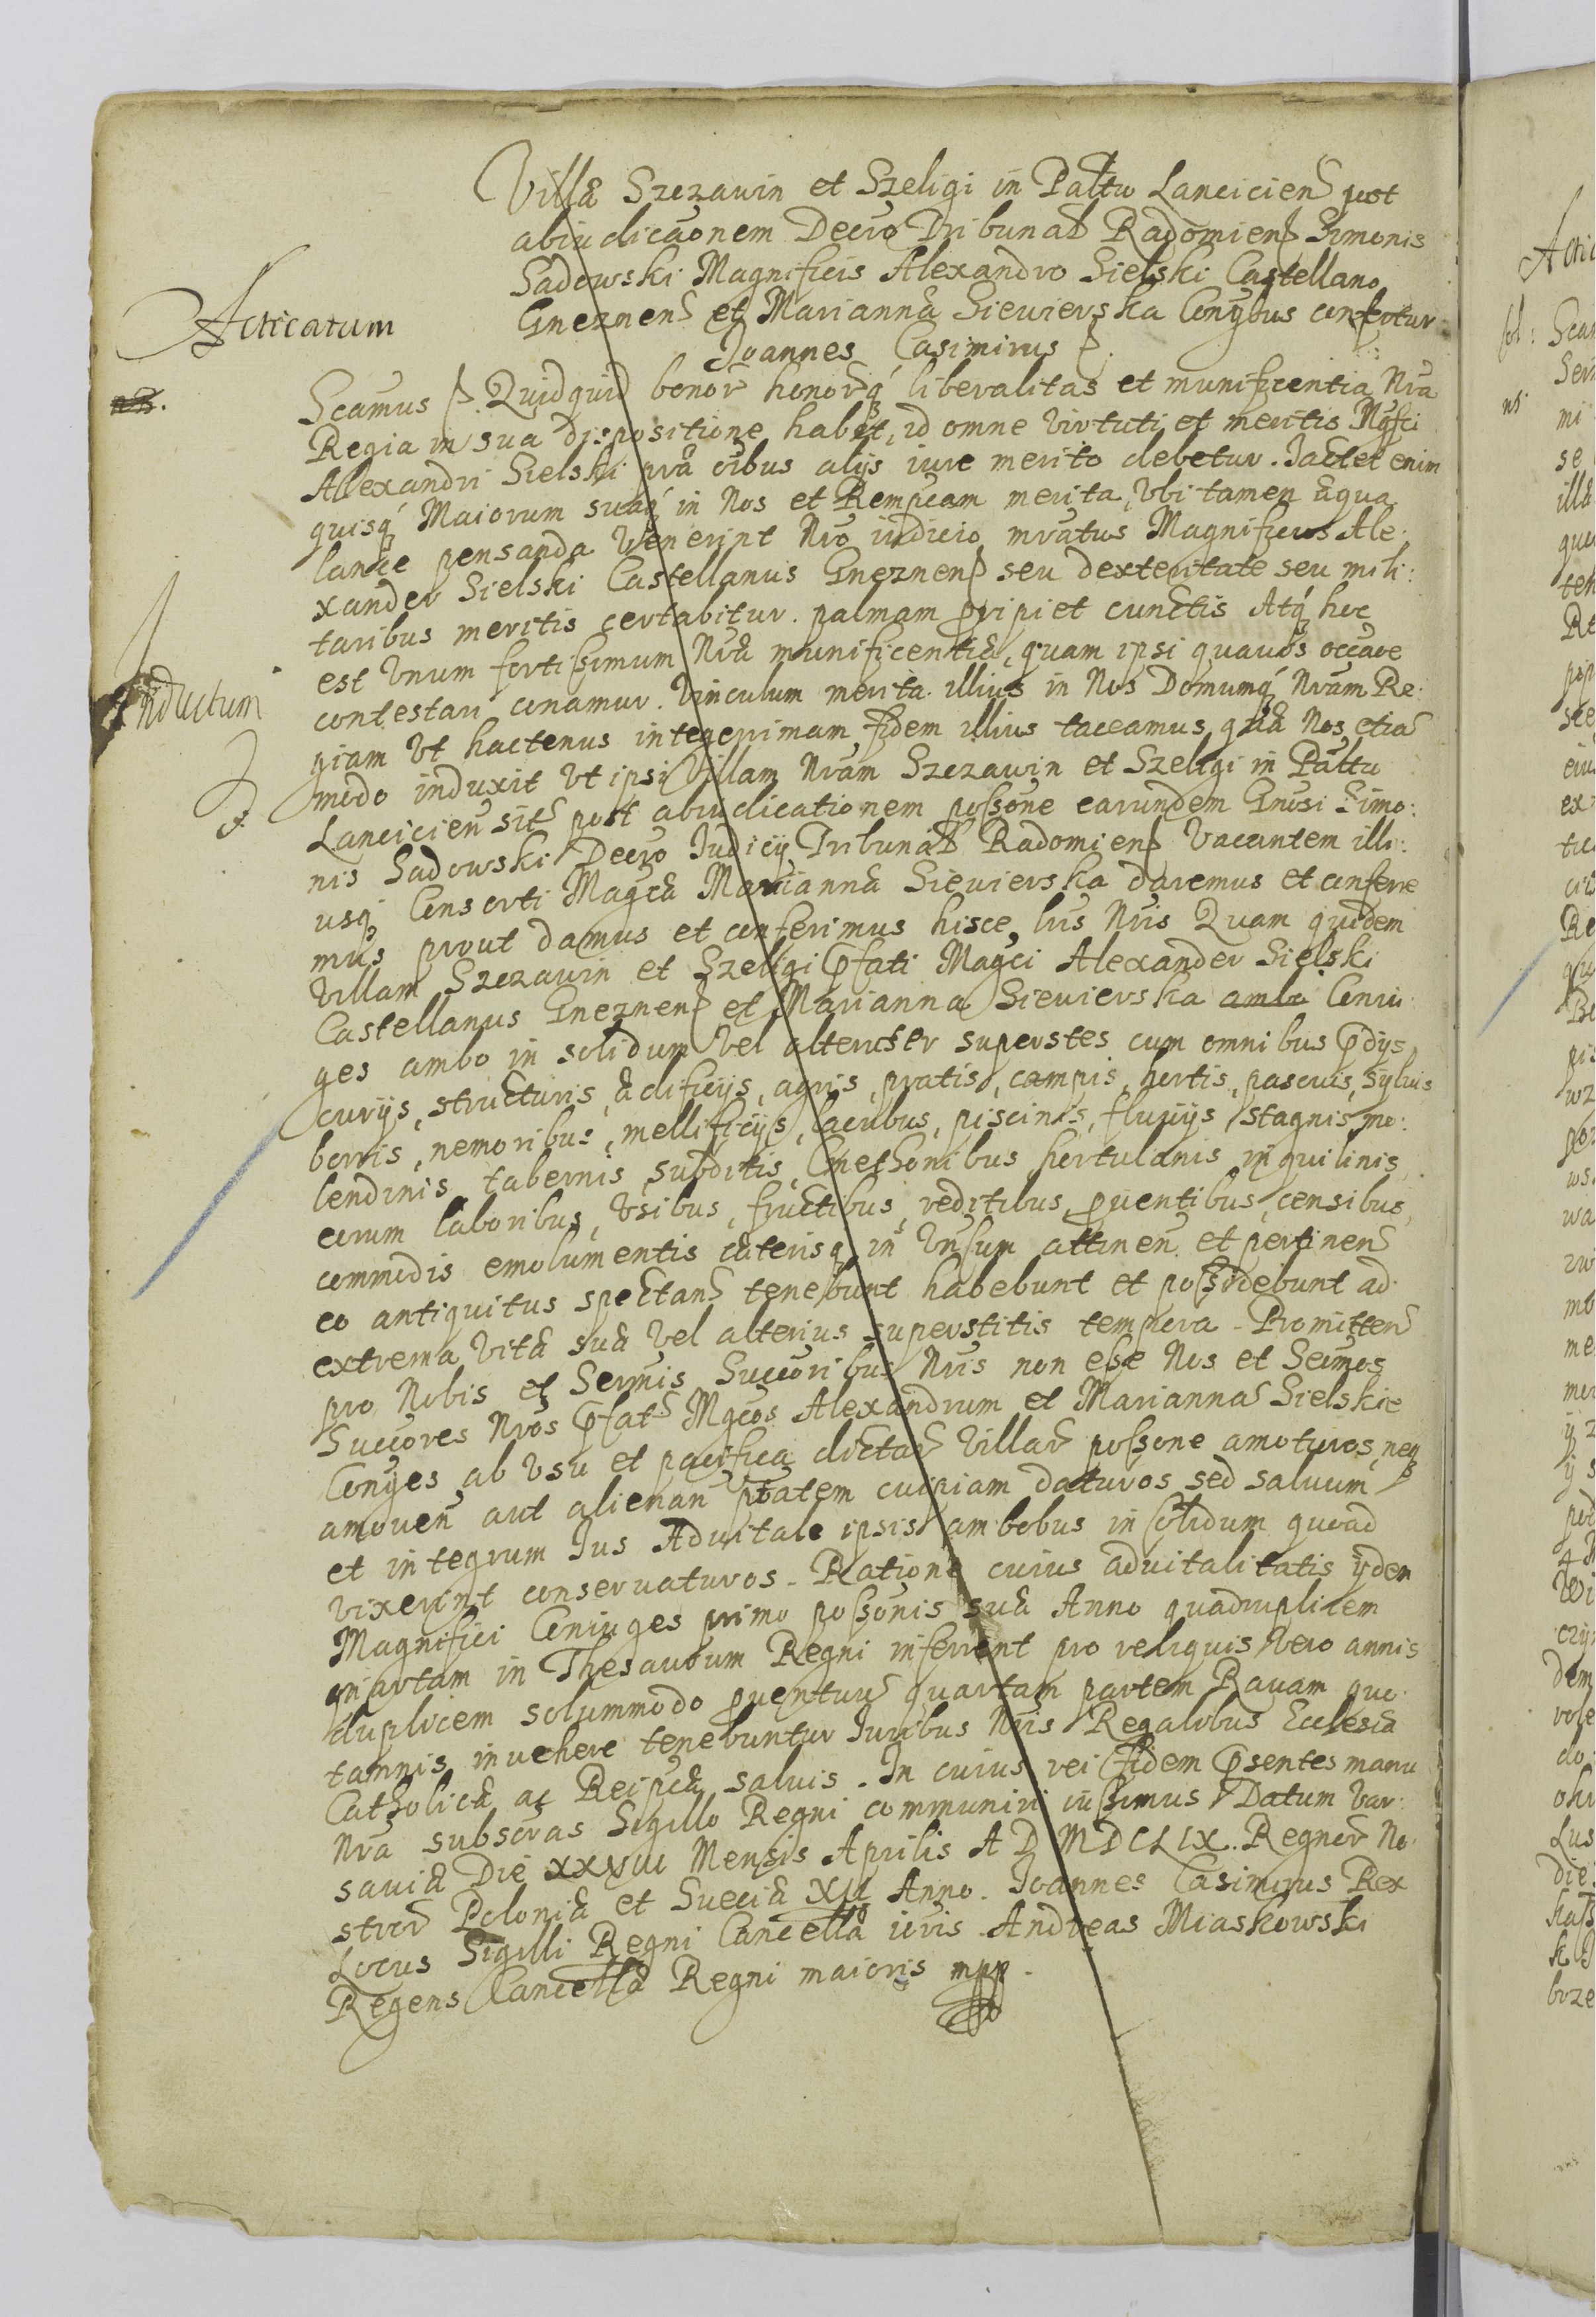 Villæ Szczawin et Szeligi in Pałtu Lanciciens post
abiudicaonem Decro Tribunal Radomiens Simonis
Sadowski Magnificis Alexandro Sielski Castellano
Gneznens et Mariannæ Sieuierska Coniybus confertur
Acticatum
Joannes Casimirus
Scamus Quidquid bonor honorq liberalitas et munificentia Nra
Regia in sua dispositione habet, id omne virtuti et meritis Mgfci
Alexandri Sielski præ oibus alijs iure merito debetur. Jactet enim
quisq Maiorum suaq in Nos et Rempcam merita, Vbi tamen æqua
lance pensanda Venerint Nro iudicio mratus Magnificus Ale:
xander Sielski Castellanus Gneznens seu dexteritate seu mili:
taribus meritis certabitur. palmam pripiet cunctis Atq hoc
est Vnum fortissimum Nræ munificentiæ, quam ipsi quauos occaoe
contestari conamur. Vinculum merita illius in Nos Domumq Nram Re:
giam Vt hactenus integerimam fidem illius taceamus quæ Nos etia
Inductum
modo induxit Vt ipsi Villam Nram Szczawin et Szeligi in Pałtu
Lanciciensi sit post abiudicationem possone earundem Gnosi Simo:
nis Sadowski Decro Judicij Tribunal Radomiens Vacantem illi:
usq Consorti Magcæ Mariannæ Sieuierska daremus et conferre
mus prout damus et conferimus hisce lris Nris Quam quidem
Villam Szczawin et Szeligi pfati Magci Alexander Sielski
Castellanus Gneznens et Marianna Sieuierska ambo Coniu
ges ambo in solidum vel alteruter superstes cum omnibus pdijs
curijs, structuris, ædificijs, agris, pratis, campis, hortis, pascuis, syluis
borris, nemoribus, mellificijs, lacubus, piscinis, fluuijs stagnis mo:
lendinis tabernis, subditis, Cmethonibus hortulanis inquilinis
eorum laboribus, Vsibus, fructibus, reditibus, puentibus, censibus,
commodis emolumentis cæterisq in Vnsum attinen et pertinen
eo antiquitus spectan tenebunt habebunt et possidebunt ad
extrema vitæ suæ vel alterius superstitis tempora. Promitten
pro Nobis et Sermis Succoribus Nris non esse Nos et Sermos
Succores Nros pfat Mgcos Alexandrum et Marianna Sielskie
Conyges ab Vsu et pacifica dictar Villar possone amoturos, neq
amouen aut alienan ptatem cuipiam daturos sed saluum
et integrum Jus Aduitale ipsis ambobus in solidum quoad
vixerint conseruaturos. Ratione cuius aduitalitatis ijdem
Magnifici Coniuges primo possonis suæ Anno quadruplicem
quartam in Thesaurum Regni inferrent pro reliquis Vero annis
duplicem solummodo puentuu quartam partem Rauam quo
tannis inuehere tenebuntur Juribus Nris Regalibus Ecclesiæ
Catholicæ ac Reipcæ saluis. In cuius rei fidem psentes manu
Nra subscras Sigillo Regni communiri iussimus Datum Var:
sauiæ Die XXVIII Mensis Aprilis A D MDCLIX. Regnor No:
stror Poloniæ et Sueciæ XII Anno. Joannes Casimirus Rex
Locus Sigilli Regni Cancella ioris Andreas Miaskowski
Regens Cancella Regni maioris mpp